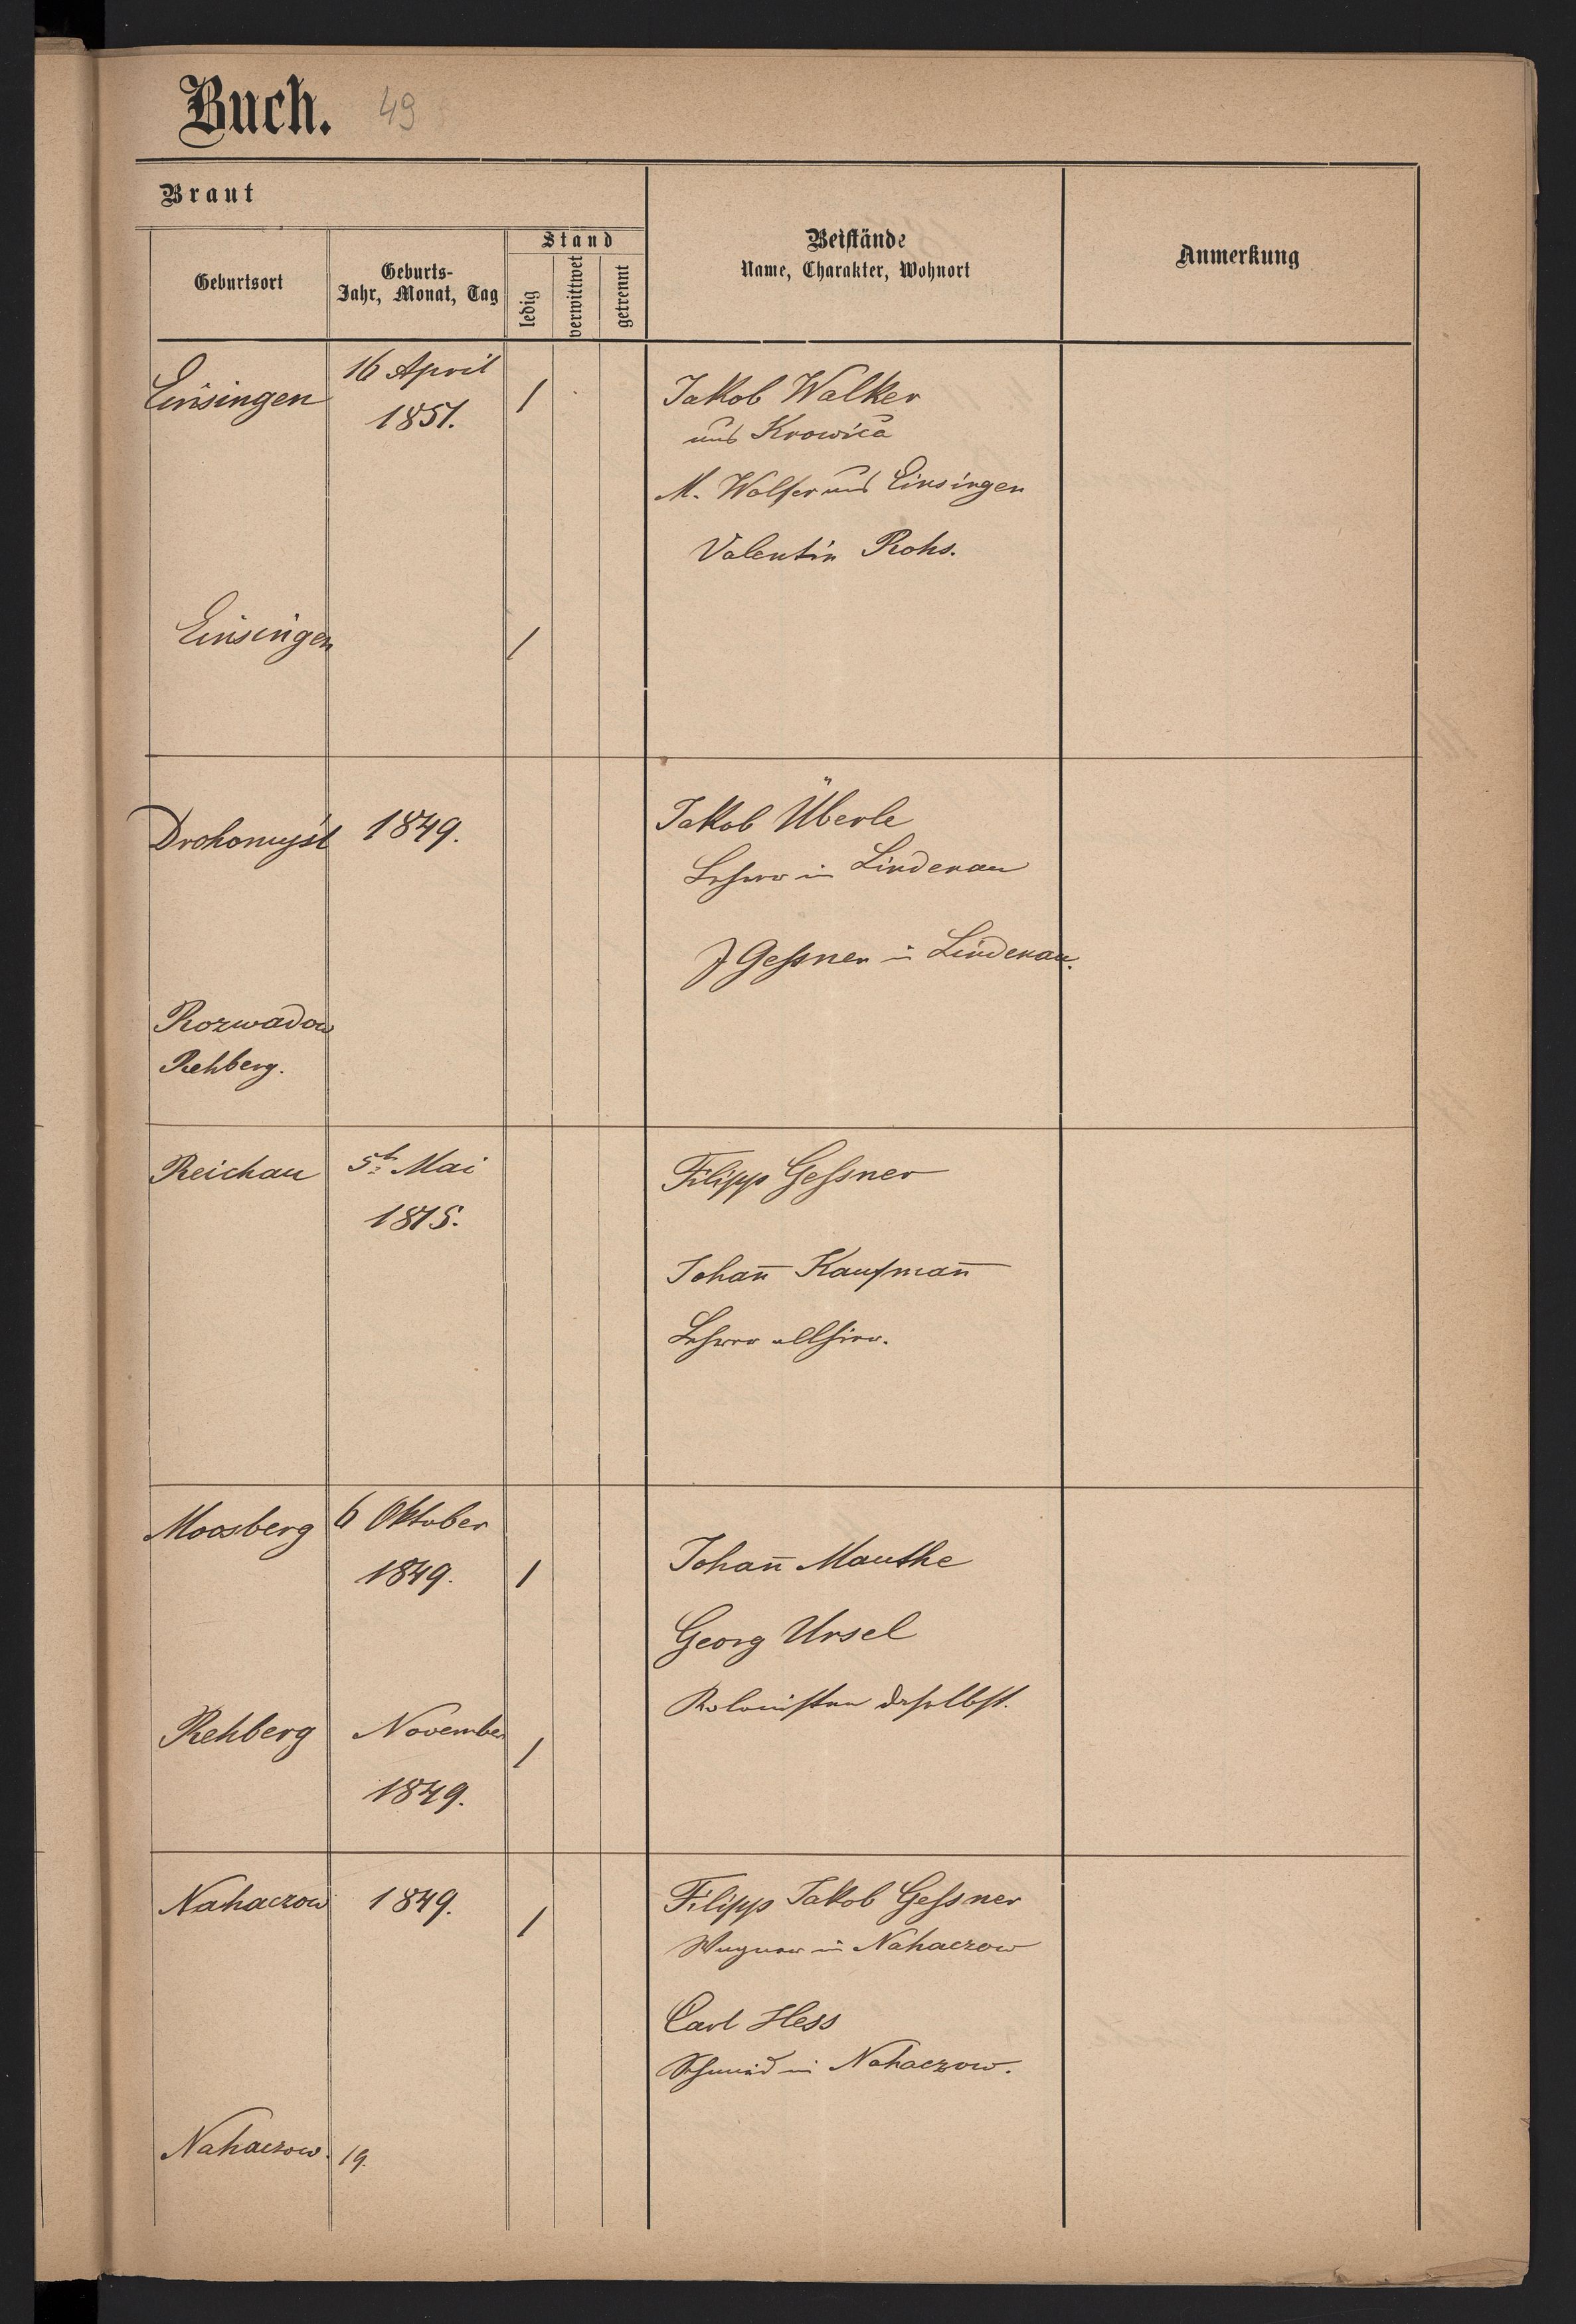 Buch. 49
Braut
Geburtsort
Geburts-
Jahr, Monat, Tag
Stand
ledig
verwittwet
getrennt
Beistände
Name, Charakter, Wohnort
Anmerkung
Einsingen
16 April
1851.
/
Jakob Walker
aus Krowica
M. Wolfer aus Einsingen
Valentin Rohs.
Einsingen
/
Drohomyśl
1849.
Jakob Überle
Lehrer in Lindenau
J Gessner in Lindenau.
Rozwadow
Rehberg.
Reichau
5t Mai
1815.
Filipp Gessner
Johan̄ Kaufman̄
Lehrer allhier.
Moosberg
6 Oktober
1849.
/
Johan̄ Mauthe
Georg Ursel
Kolonisten daselbst.
Rehberg
November
1849.
/
Nahaczow
1849.
/
Filipp Jakob Gessner
Wagner in Nahaczow
Carl Hess
Schmid in Nahaczow.
Nahaczow. 19.